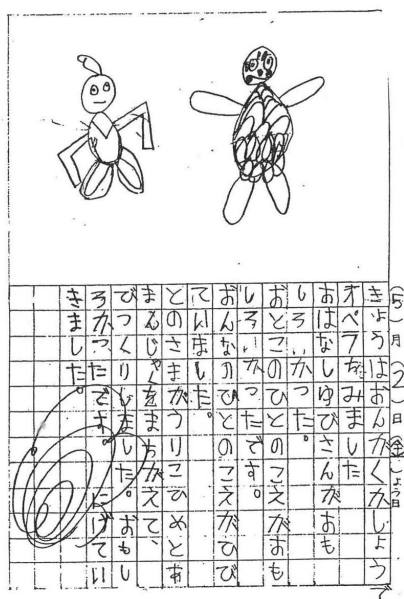 (5)月(2)日(金)よう日
きょうはおんがくかしょうで
オペラをみました
おはなしゆびさんがおも
しろいかった。
おとこのひとのこえがおも
しろいかったです。
おんなのひとのこえがひび
ていました。
とのさまがうりこひめとあ
まんじゃくをまちがえて、
びっくりしました。おもし
ろかったです。にげてい
きました。